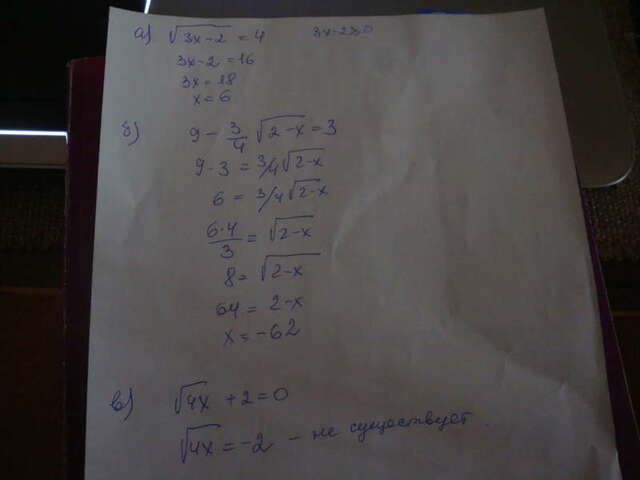 а) √3x-2 = 4 3x-2≥0
3x-2 = 16
3x = 18
x = 6
б) 9 - 3/4 √2-x = 3
9-3 = 3/4 √2-x
6 = 3/4 √2-x
6·4/3 = √2-x
8 = √2-x
64 = 2-x
x = -62
в) √4x + 2 = 0
√4x = -2 - не существует.